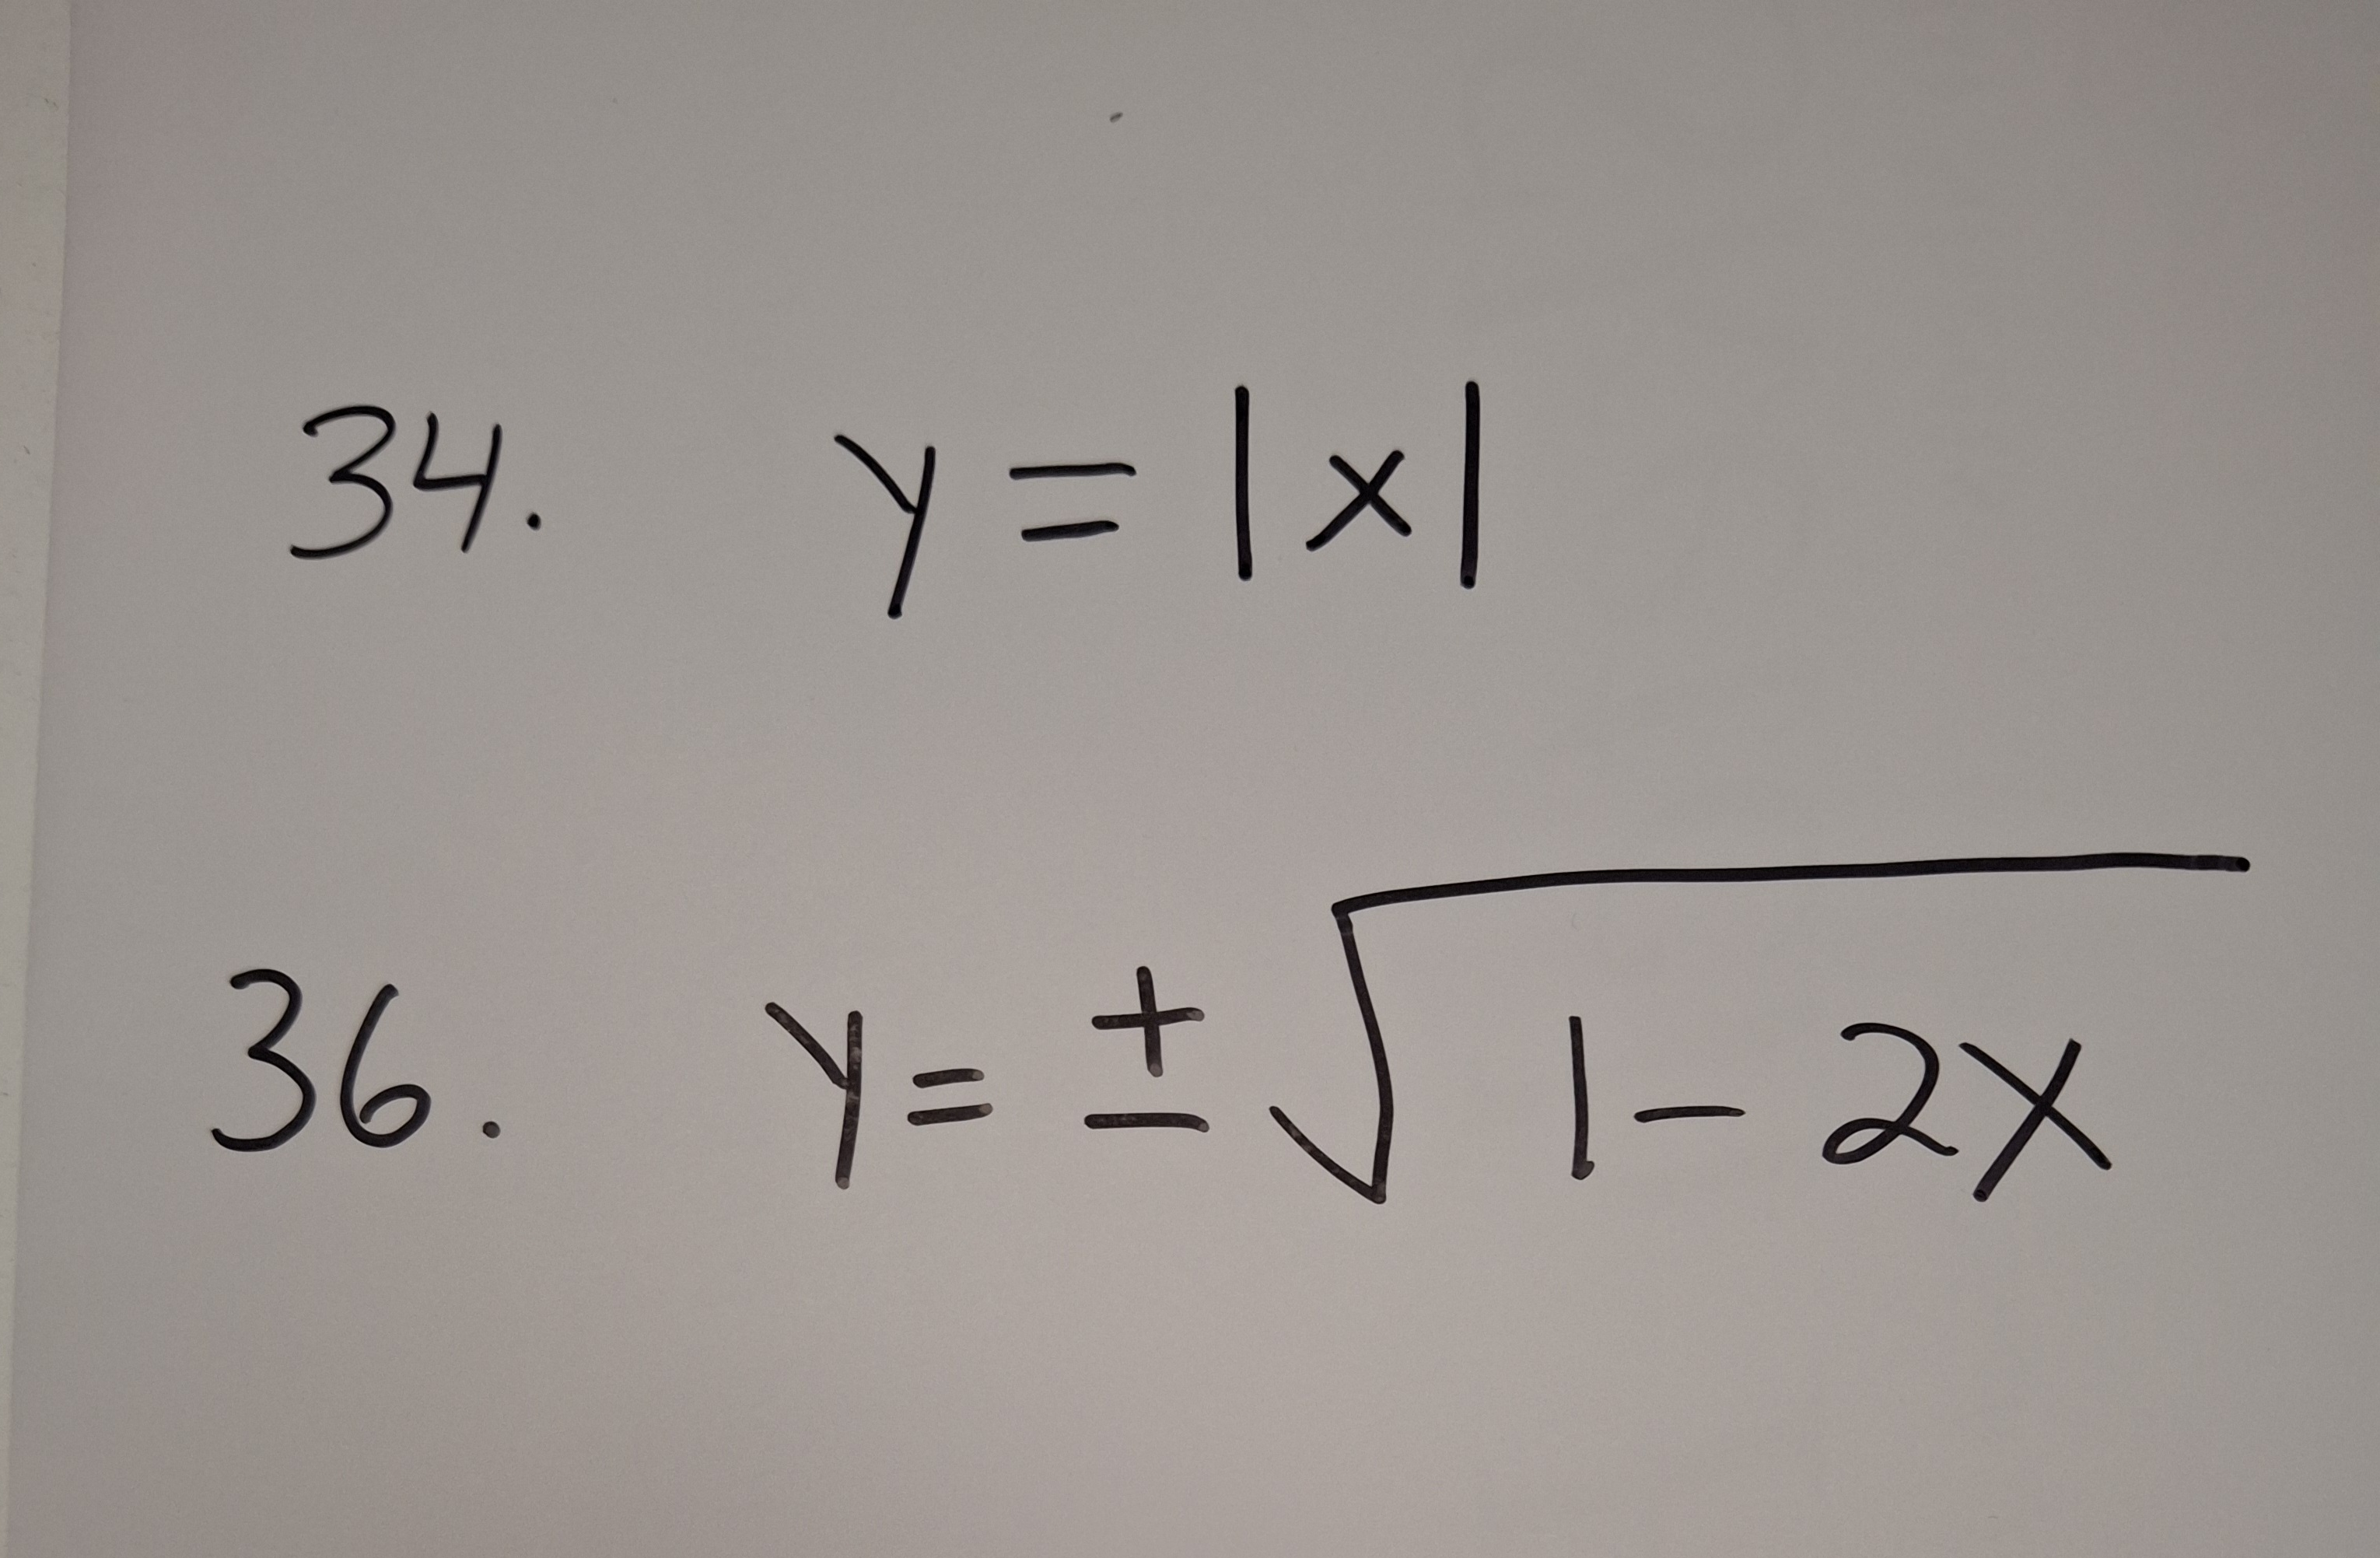 34. y = |x|
36. y = ± √(1 - 2x)